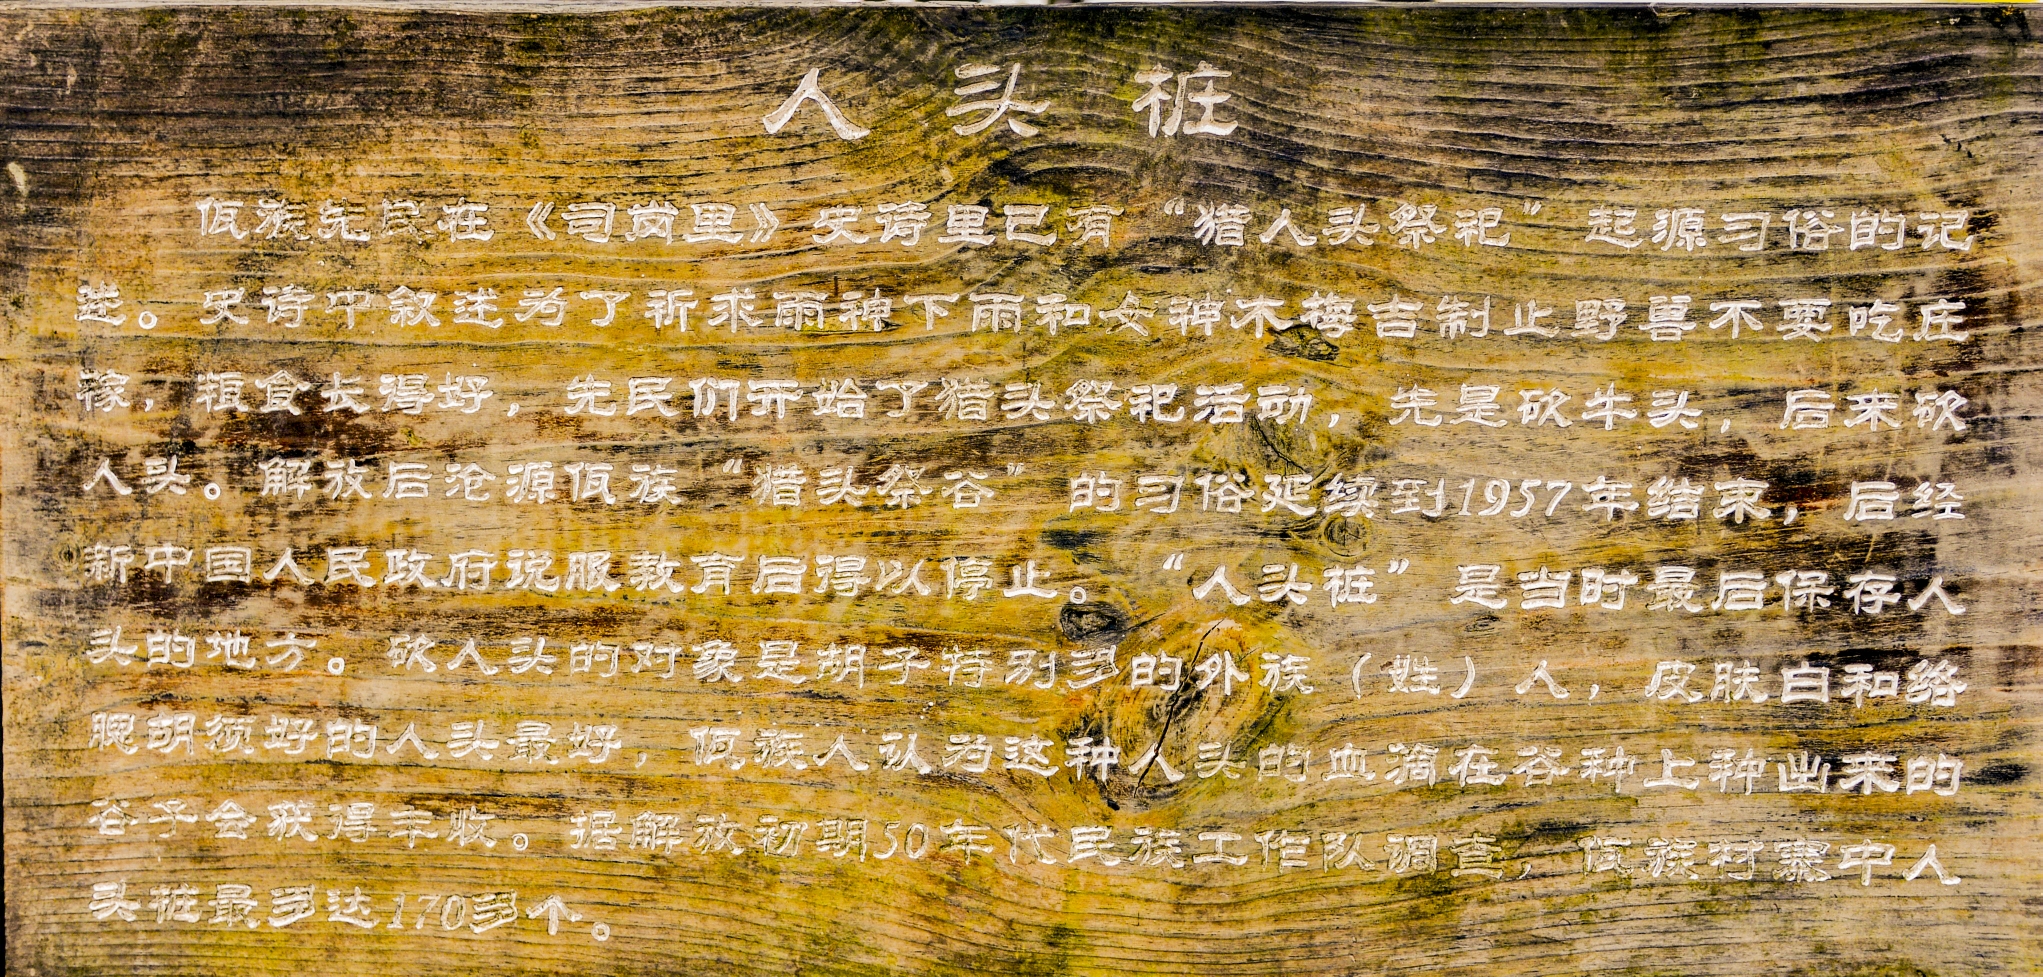 人头桩
佤族先民在《司岗里》史诗里已有“猎人头祭祀”起源习俗的记
述。史诗中叙述为了祈求雨神下雨和女神木梅吉制止野兽不要吃庄
稼，粮食长得好，先民们开始了猎头祭祀活动，先是砍牛头，后来砍
人头。解放后沧源佤族“猎头祭谷”的习俗延续到1957年结束，后经
新中国人民政府说服教育后得以停止。“人头桩”是当时最后保存人
头的地方。砍人头的对象是胡子特别多的外族（姓）人，皮肤白和络
腮胡须好的人头最好，佤族人认为这种人头的血滴在谷种上种出来的
谷子会获得丰收。据解放初期50年代民族工作队调查，佤族村寨中人
头桩最多达170多个。